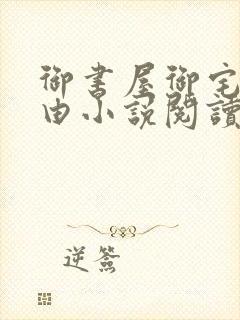 御書屋御宅
由小説閱讀
逆簽